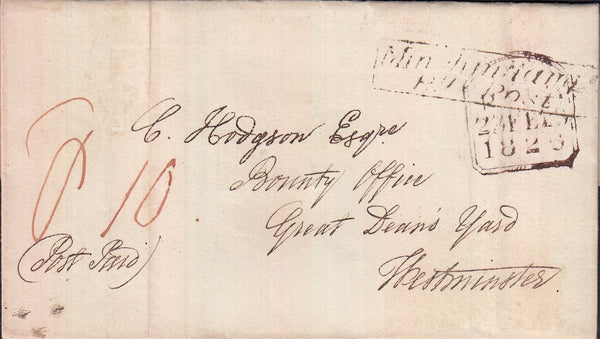 C. Hodgson Esqre.
Bounty Office
Great Dean's Yard
Westminster.
P 10
(Post Paid)
Post
1829